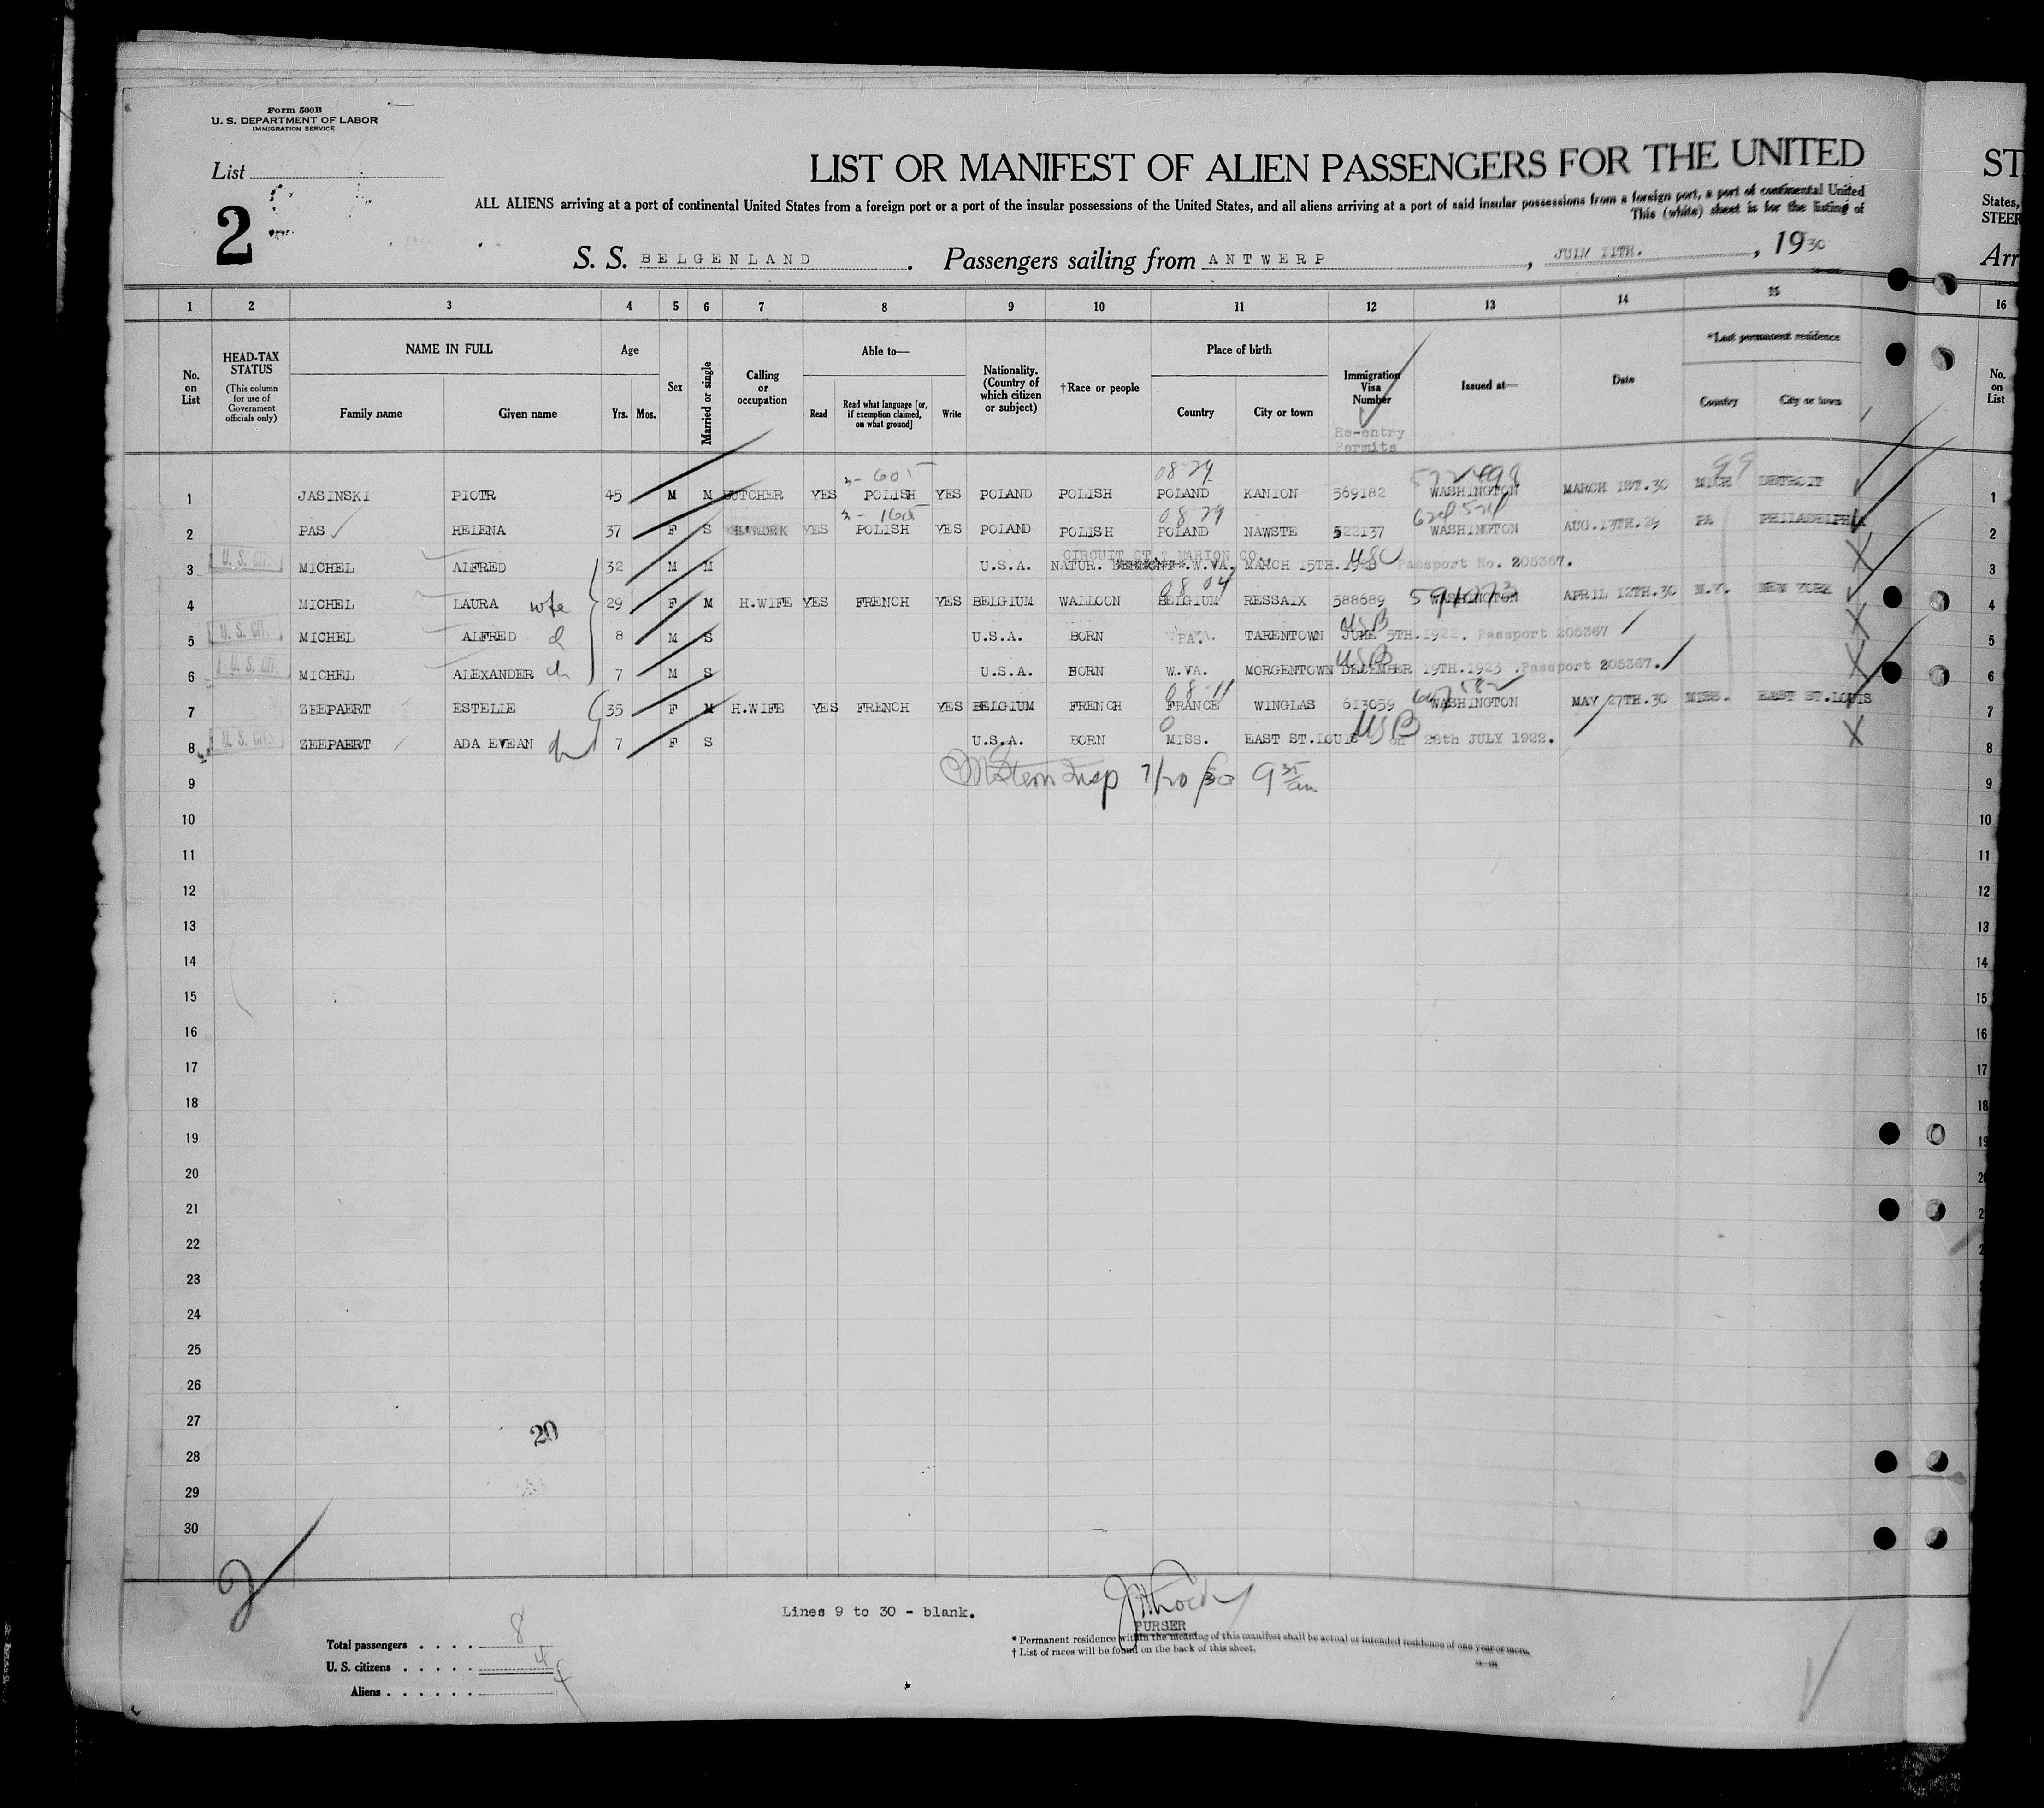 Form 500B
U. S. DEPARTMENT OF LABOR
IMMIGRATION SERVICE
List
2
LIST OR MANIFEST OF ALIEN PASSENGERS FOR THE UNITED
ST
ALL ALIENS arriving at a port of continental United States from a foreign port or a port of the insular possessions of the United States, and all aliens arriving at a port of said insular possessions from a foreign port, a port of continental United
States,
This (white) sheet is for the listing of
STEER
S. S. BELGENLAND . Passengers sailing from ANTWERP , 11TH. , 1930
Arr
1 2 3 4 5 6 7 8 9 10 11 12 13 14 15 16
No. on List
HEAD-TAX STATUS
(This column for use of Government officials only)
NAME IN FULL
Family name Given name
Age
Yrs. Mos.
Sex
Married or single
Calling or occupation
Able to—
Read
Read what language [or, if exemption claimed, on what ground]
Write
Nationality. (Country of which citizen or subject)
†Race or people
Place of birth
Country City or town
Immigration Visa Number
Re-entry Permits
Issued at—
Date
*Last permanent residence
Country City or town
No. on List
3-605 0829 572498 99
1 JASINSKI PIOTR 45 M M BUTCHER YES POLISH YES POLAND POLISH POLAND KANION 569182 WASHINGTON MARCH 1ST.30 MICH DETROIT 1
3-165 0829
2 PAS HELENA 37 F S H.WORK YES POLISH YES POLAND POLISH POLAND NAWSTE 522137 WASHINGTON AUG.13TH.29 PA PHILADELPHIA 2
CIRCUIT CT. MARION CO. USC
3 U. S. CIT. MICHEL ALFRED 32 M M U.S.A. NATUR. W.VA. MARCH 15TH. Passport No. 205367. 3
0804
4 MICHEL LAURA wife 29 F M H.WIFE YES FRENCH YES BELGIUM WALLOON BELGIUM RESSAIX 588689 WASHINGTON APRIL 12TH.30 N.Y. NEW YORK 4
USB
5 U. S. CIT. MICHEL ALFRED 8 M S U.S.A. BORN PA. TARENTOWN JUNE 5TH.1922. Passport 205367 5
USB
6 U. S. CIT. MICHEL ALEXANDER ch 7 M S U.S.A. BORN W.VA. MORGENTOWN DECEMBER 19TH.1923 .Passport 205367. 6
0811
7 ZEEPAERT ESTELLE 35 F M H.WIFE YES FRENCH YES BELGIUM FRENCH FRANCE WINGLAS 613059 WASHINGTON MAY 27TH.30 MISS. EAST ST.LOUIS 7
USB
8 U. S. CIT. ZEEPAERT ADA EVEAN ch 7 F S U.S.A. BORN MISS. EAST ST.LOUIS on 28th JULY 1922. 8
9 Stern Insp 7/20/30 9 35 am 9
10 10
11 11
12 12
13 13
14 14
15 15
16 16
17 17
18 18
19 19
20 20
21 21
22
23
24
25
26
27
20
28
29
30
2
Lines 9 to 30 - blank.
PURSER
Total passengers . . . . 8
U. S. citizens . . . . . 4
Aliens . . . . . . 4
* Permanent residence within the meaning of this manifest shall be actual or intended residence of one year or more.
† List of races will be found on the back of this sheet.